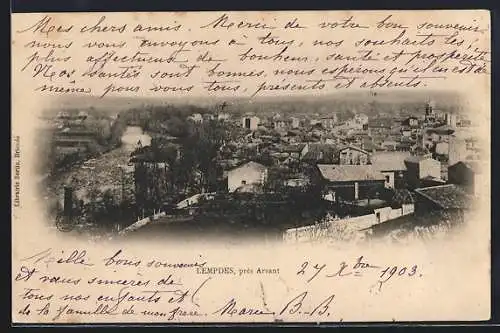 Mes chers amis. Merci de votre bon souvenir
nous vous envoyons à tous, nos souhaits les
plus affectueux de bonheur, santé et prospérité
Nos santés sont bonnes, nous espérons qu'il en est de
même pour vous tous, présents et absents.
Librairie Bertin, Brioude
LEMPDES, près Arvant
27 Xbre 1903.
Mille bons souvenirs
et vœux sincères de
tous nos enfants et
de la famille de mon frère. Marie B. B.